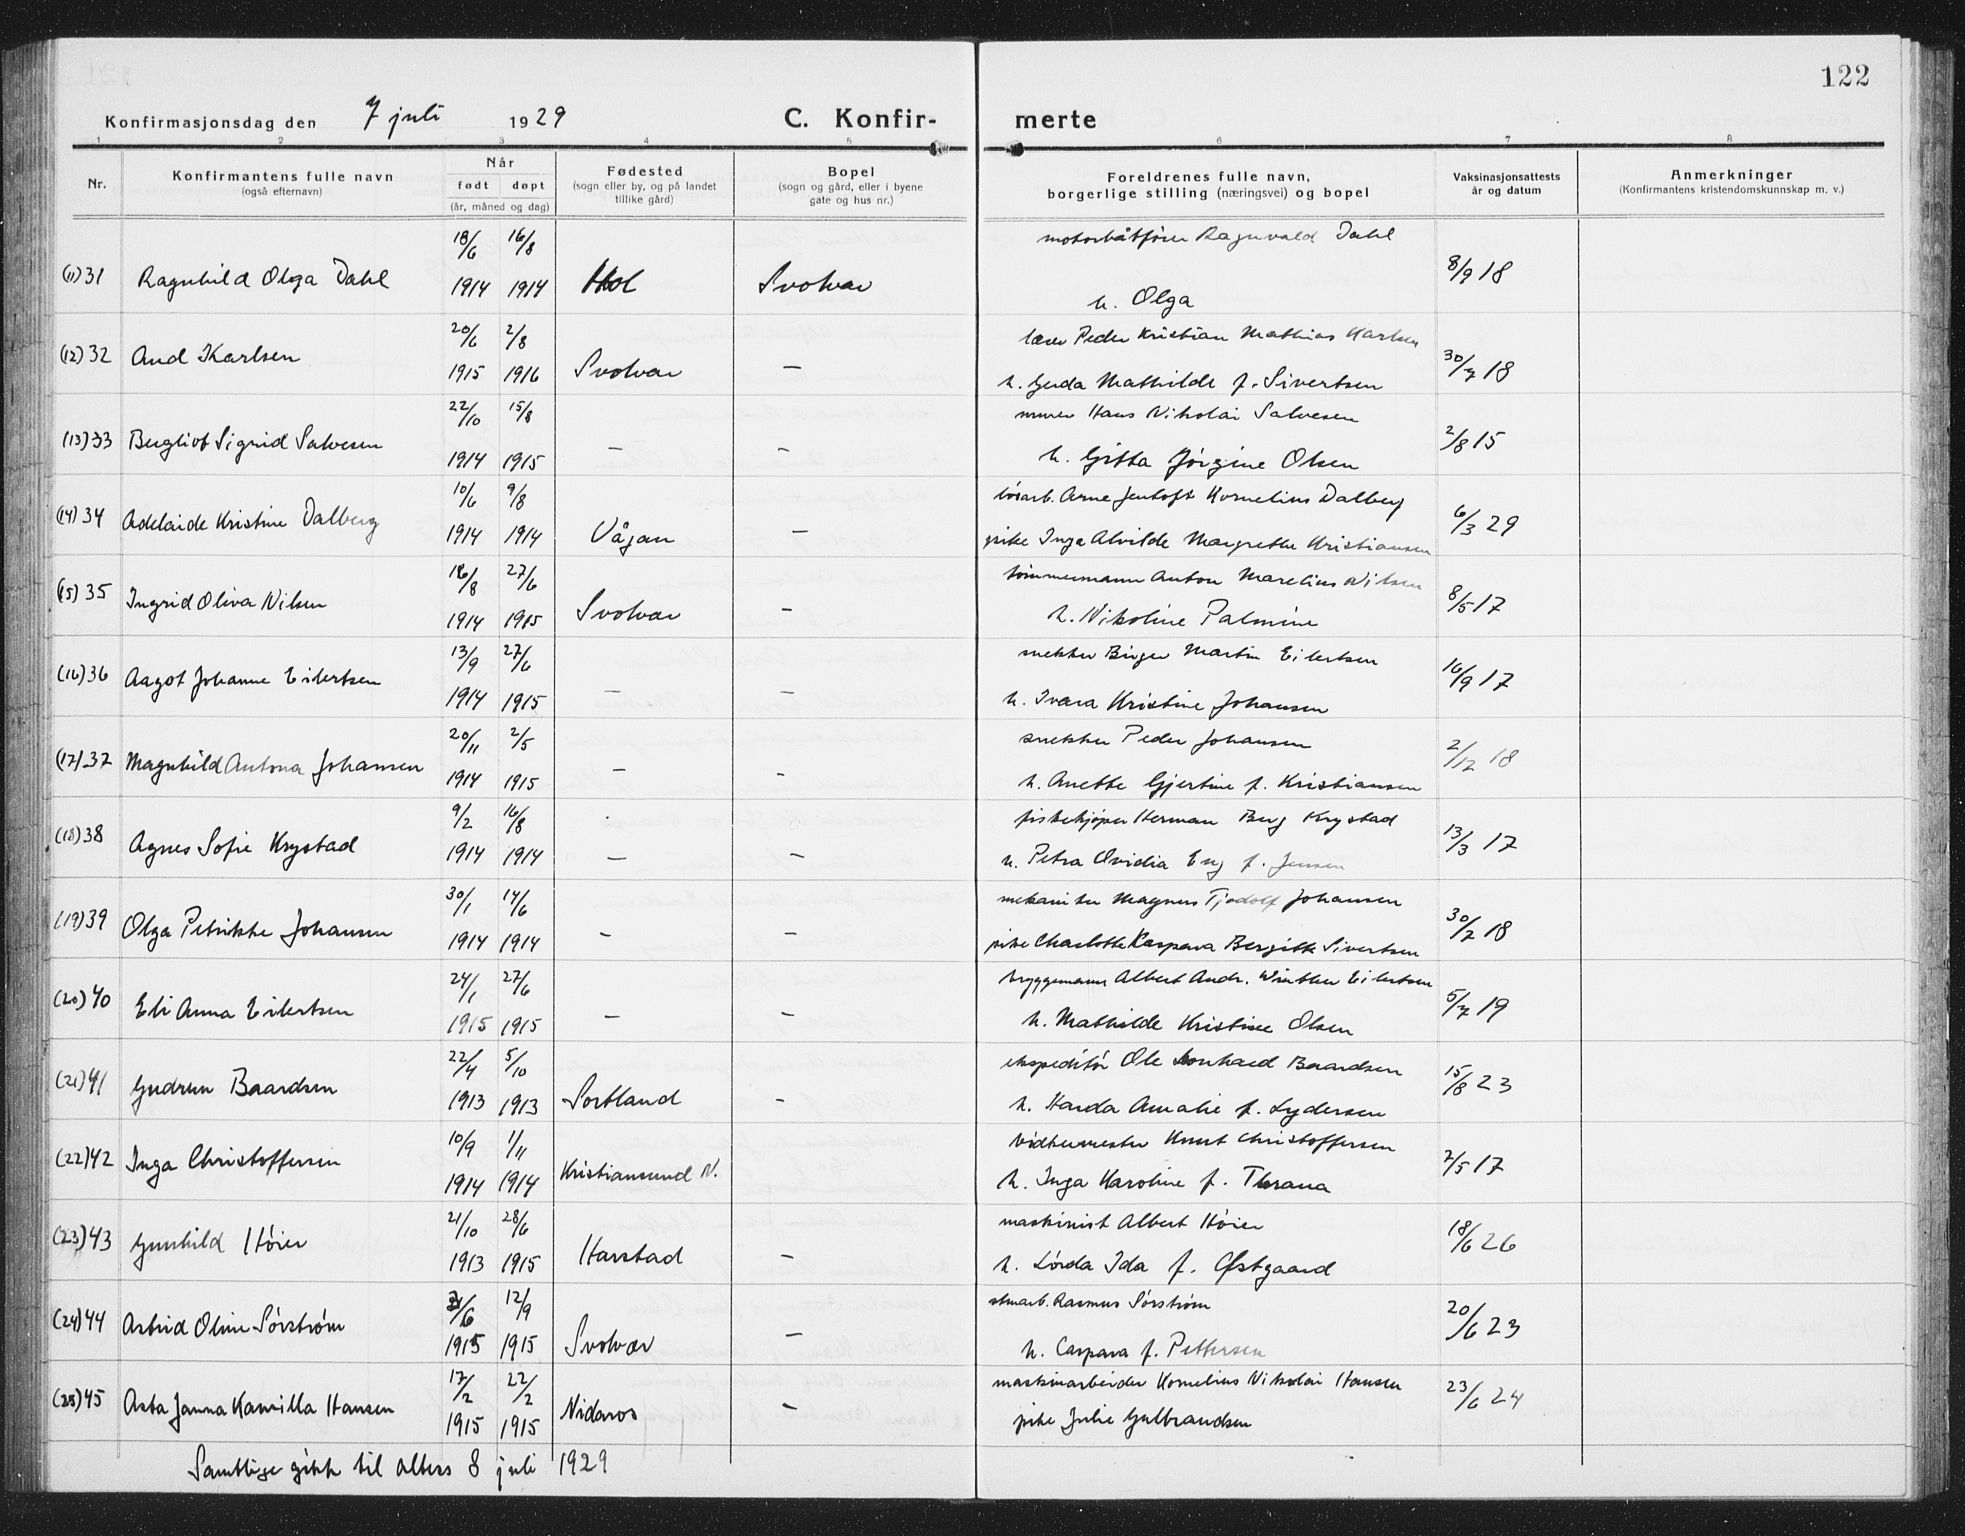 122
Konfirmasjonsdag den 7 juli 1929 C. Konfir- merte
1 2 3 4 5 6 7 8
Nr. Konfirmantens fulle navn (også efternavn) Når født døpt (år, måned og dag) Fødested (sogn eller by, og på landet tillike gård) Bopel (sogn og gård, eller i byene gate og hus nr.) Foreldrenes fulle navn, borgerlige stilling (næringsvei) og bopel Vaksinasjonsattests år og datum Anmerkninger (Konfirmantens kristendomskunnskap m. v.)
18/6 16/8 motorbåtfører Ragnvald Dahl
(11) 31 Ragnhild Olga Dahl 1914 1914 Hol Svolvær h. Olga 8/9 18
20/6 2/8 lærer Peder Kristian Mathias Karlsen
(12) 32 Aud Karlsen 1915 1916 Svolvær — h. Gerda Mathilde f. Sivertsen 30/7 18
22/10 15/8 murer Hans Nikolai Salvesen
(13) 33 Bergliot Sigrid Salvesen 1914 1915 — — h. Gitta Jørgine Olsen 2/8 15
10/6 9/8 løsarb. Arne Jentoft Kornelius Dalberg
(14) 34 Adelaide Kristine Dalberg 1914 1914 Vågan — pike Inga Alvilde Margrethe Kristiansen 6/3 29
16/8 27/6 tømmermann Anton Marelius Nilsen
(15) 35 Ingrid Oliva Nilsen 1914 1915 Svolvær — h. Nikoline Palmine 8/5 17
13/9 27/6 snekker Birger Martin Eilertsen
(16) 36 Aagot Johanne Eilertsen 1914 1915 — — h. Ivara Kristine Johansen 16/9 17
20/11 2/5 snekker Peder Johansen
(17) 37 Magnhild Antona Johansen 1914 1915 — — h. Anette Gjertine f. Kristiansen 2/12 18
9/2 16/8 fiskekjøper Herman Berg Krystad
(18) 38 Agnes Sofie Krystad 1914 1914 — — h. Petra Ovidia Eng f. Jensen 13/3 17
30/1 14/6 mekaniker Magnus Tjodolf Johansen
(19) 39 Olga Petrikke Johansen 1914 1914 — — pike Charlotte Kaspara Bergitte Sivertsen 30/7 18
24/1 27/6 bryggemann Albert Andr. Winther Eilertsen
(20) 40 Eli Anna Eilertsen 1915 1915 — — h. Mathilde Kristine Olsen 5/7 19
22/4 5/10 ekspeditør Ole Leonhard Baardsen
(21) 41 Gudrun Baardsen 1913 1913 Sortland — h. Harda Amalie f. Lydersen 15/8 23
10/9 1/11 Knut Christoffersen
(22) 42 Inga Christoffersen 1914 1914 Kristiansund N. h. Inga Karoline f. Thrana 2/5 17
21/10 28/6 maskinist Albert Høier
(23) 43 Gunhild Høier 1913 1915 Harstad — h. Lørda Ida f. Østgaard 18/6 26
/6 12/9 Rasmus Sørstrøm
(24) 44 Astrid Oline Sørstrøm 1915 1915 Svolvær — h. Caspara f. Pettersen 20/6 23
17/2 22/2 maskinarbeider Kornelius Nikolai Hansen
(25) 45 Asta Janna Kamilla Hansen 1915 1915 Nidaros — pike Julie Gulbrandsen 23/6 24
Samtlige gikk til alters 8 juli 1929